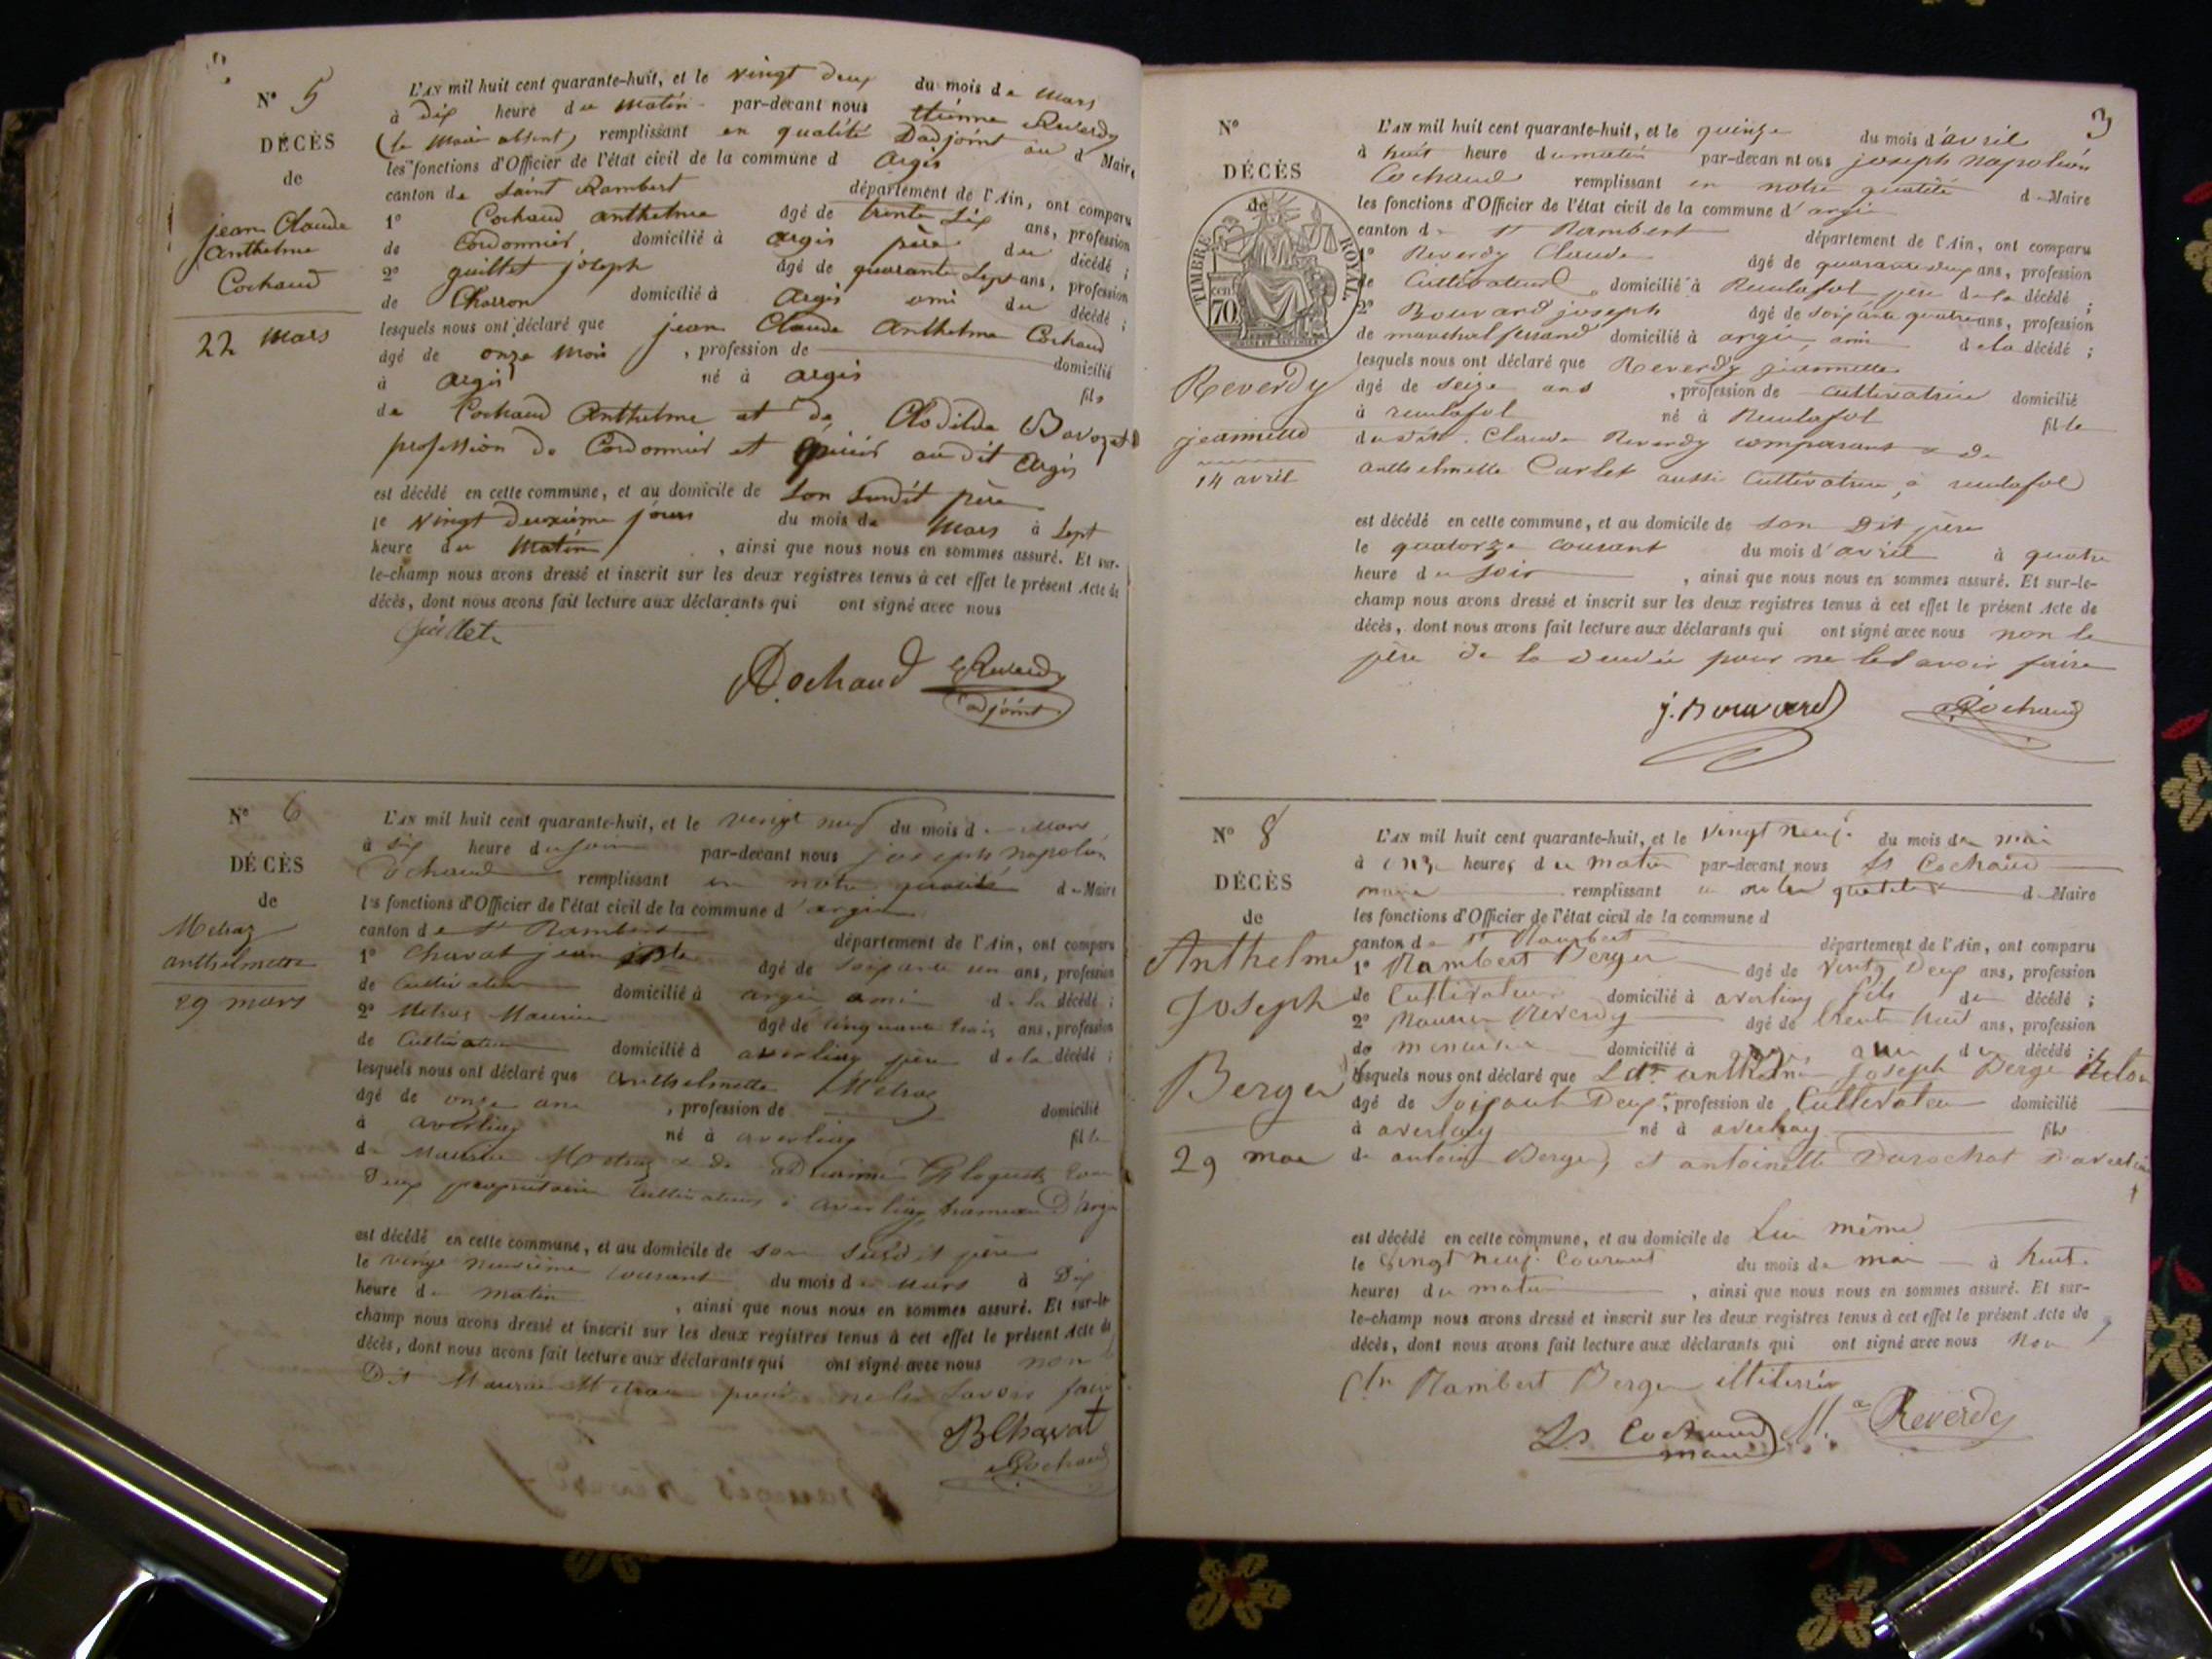 N° 5
DÉCÈS
de
jean Claude
Anthelme
Cochaud
22 mars
L'AN mil huit cent quarante-huit, et le vingt deux du mois de mars
à dix heure du matin par-devant nous Etienne Reverdy
(le Maire absent) remplissant en qualité D'adjoint au d Maire
les fonctions d'Officier de l'état civil de la commune d Argis
canton de Saint Rambert département de l'Ain, ont comparu
1° Cochaud anthelme âgé de trente six ans, profession
de Cordonnier, domicilié à argis père du décédé ;
2° guillet joseph âgé de quarante sept ans, profession
de Charron domicilié à Argis ami du décédé ;
lesquels nous ont déclaré que jean Claude Anthelme Cochaud
âgé de onze mois , profession de domicilié
à Argis né à argis fils
de Cochaud Anthelme et de Clodilde
profession de Cordonnier et au dit Argis
est décédé en cette commune, et au domicile de son susdit père
le vingt deuxième jours du mois de Mars à sept
heure du matin , ainsi que nous nous en sommes assuré. Et sur-
le-champ nous avons dressé et inscrit sur les deux registres tenus à cet effet le présent Acte de
décès, dont nous avons fait lecture aux déclarants qui ont signé avec nous
Guillet
Cochaud Reverdy
adjoint
N° 6
DÉCÈS
de
Metraz
anthelmette
29 mars
L'AN mil huit cent quarante-huit, et le vingt neuf du mois de Mars
à six heure du soir par-devant nous joseph napoléon
Cochaud remplissant en notre qualité d Maire
les fonctions d'Officier de l'état civil de la commune d'argis
canton de St Rambert département de l'Ain, ont comparu
1° Chavat jean âgé de soixante un ans, profession
de Cultivateur domicilié à argis ami de la décédé ;
2° Metraz Maurice âgé de cinquante trois ans, profession
de Cultivateur domicilié à averliaz père de la décédé ;
lesquels nous ont déclaré que anthelmette Metraz
âgé de onze ans , profession de domicilié
à averliaz né à averliaz fille
de Maurice Metraz & de
Deux propriétaires Cultivateurs à averliaz hameau D'argis
est décédé en cette commune, et au domicile de son susdit père
le vingt neuvième courant du mois de mars à Dix
heure du matin , ainsi que nous nous en sommes assuré. Et sur-le-
champ nous avons dressé et inscrit sur les deux registres tenus à cet effet le présent Acte de
décès, dont nous avons fait lecture aux déclarants qui ont signé avec nous non le
Dit Maurice Metraz pour ne les savoir faire
Chavat
Cochaud
3
N°
DÉCÈS
de
TIMBRE ROYAL
70 cent
Reverdy
jeannette
14 avril
L'AN mil huit cent quarante-huit, et le quinze du mois d'avril
à huit heure du matin par-devan nt ous joseph napoléon
Cochaud remplissant en notre qualité d Maire
les fonctions d'Officier de l'état civil de la commune d'argis
canton de St Rambert département de l'Ain, ont comparu
1° Reverdy Claude âgé de quarante deux ans, profession
de Cultivateur domicilié à Reculafol père de la décédé ;
2° Bouvard joseph âgé de soixante quatre ans, profession
de marechal ferrand domicilié à argis, ami de la décédé ;
lesquels nous ont déclaré que Reverdy jeannette
âgé de seize ans , profession de cultivatrice domicilié
à reculafol né à Reculafol fille
du dit Claude Reverdy comparant & de
anthelmette Carlet aussi Cultivatrice, à reculafol
est décédé en cette commune, et au domicile de son Dit père
le quatorze courant du mois d'avril à quatre
heure du soir , ainsi que nous nous en sommes assuré. Et sur-le-
champ nous avons dressé et inscrit sur les deux registres tenus à cet effet le présent Acte de
décès, dont nous avons fait lecture aux déclarants qui ont signé avec nous non le
père de la pour ne les savoir faire
j. Bouvard Cochaud
N° 8
DÉCÈS
de
Anthelme
Joseph
Berger
29 mai
L'AN mil huit cent quarante-huit, et le vingt neuf du mois de mai
à onze heures du matin par-devant nous Ls Cochaud
maire remplissant en notre qualité d Maire
les fonctions d'Officier de l'état civil de la commune d
canton de St Rambert département de l'Ain, ont comparu
1° Rambert Berger âgé de vente Deux ans, profession
de Cultivateur domicilié à averliaz fils du décédé ;
2° Maurice Reverdy âgé de trente huit ans, profession
de menuisier domicilié à argis ami du décédé ;
lesquels nous ont déclaré que Anthelme Joseph Berger
âgé de soixante Deux, profession de Cultivateur domicilié
à averliaz né à averliaz fils
de antoine Berger et antoinette Durochat
est décédé en cette commune, et au domicile de Lui même
le vingt neuf Courant du mois de mai à huit
heures du matin , ainsi que nous nous en sommes assuré. Et sur-
le-champ nous avons dressé et inscrit sur les deux registres tenus à cet effet le présent Acte de
décès, dont nous avons fait lecture aux déclarants qui ont signé avec nous non
Rambert Berger
Ls Cochaud Mce Reverdy
maire